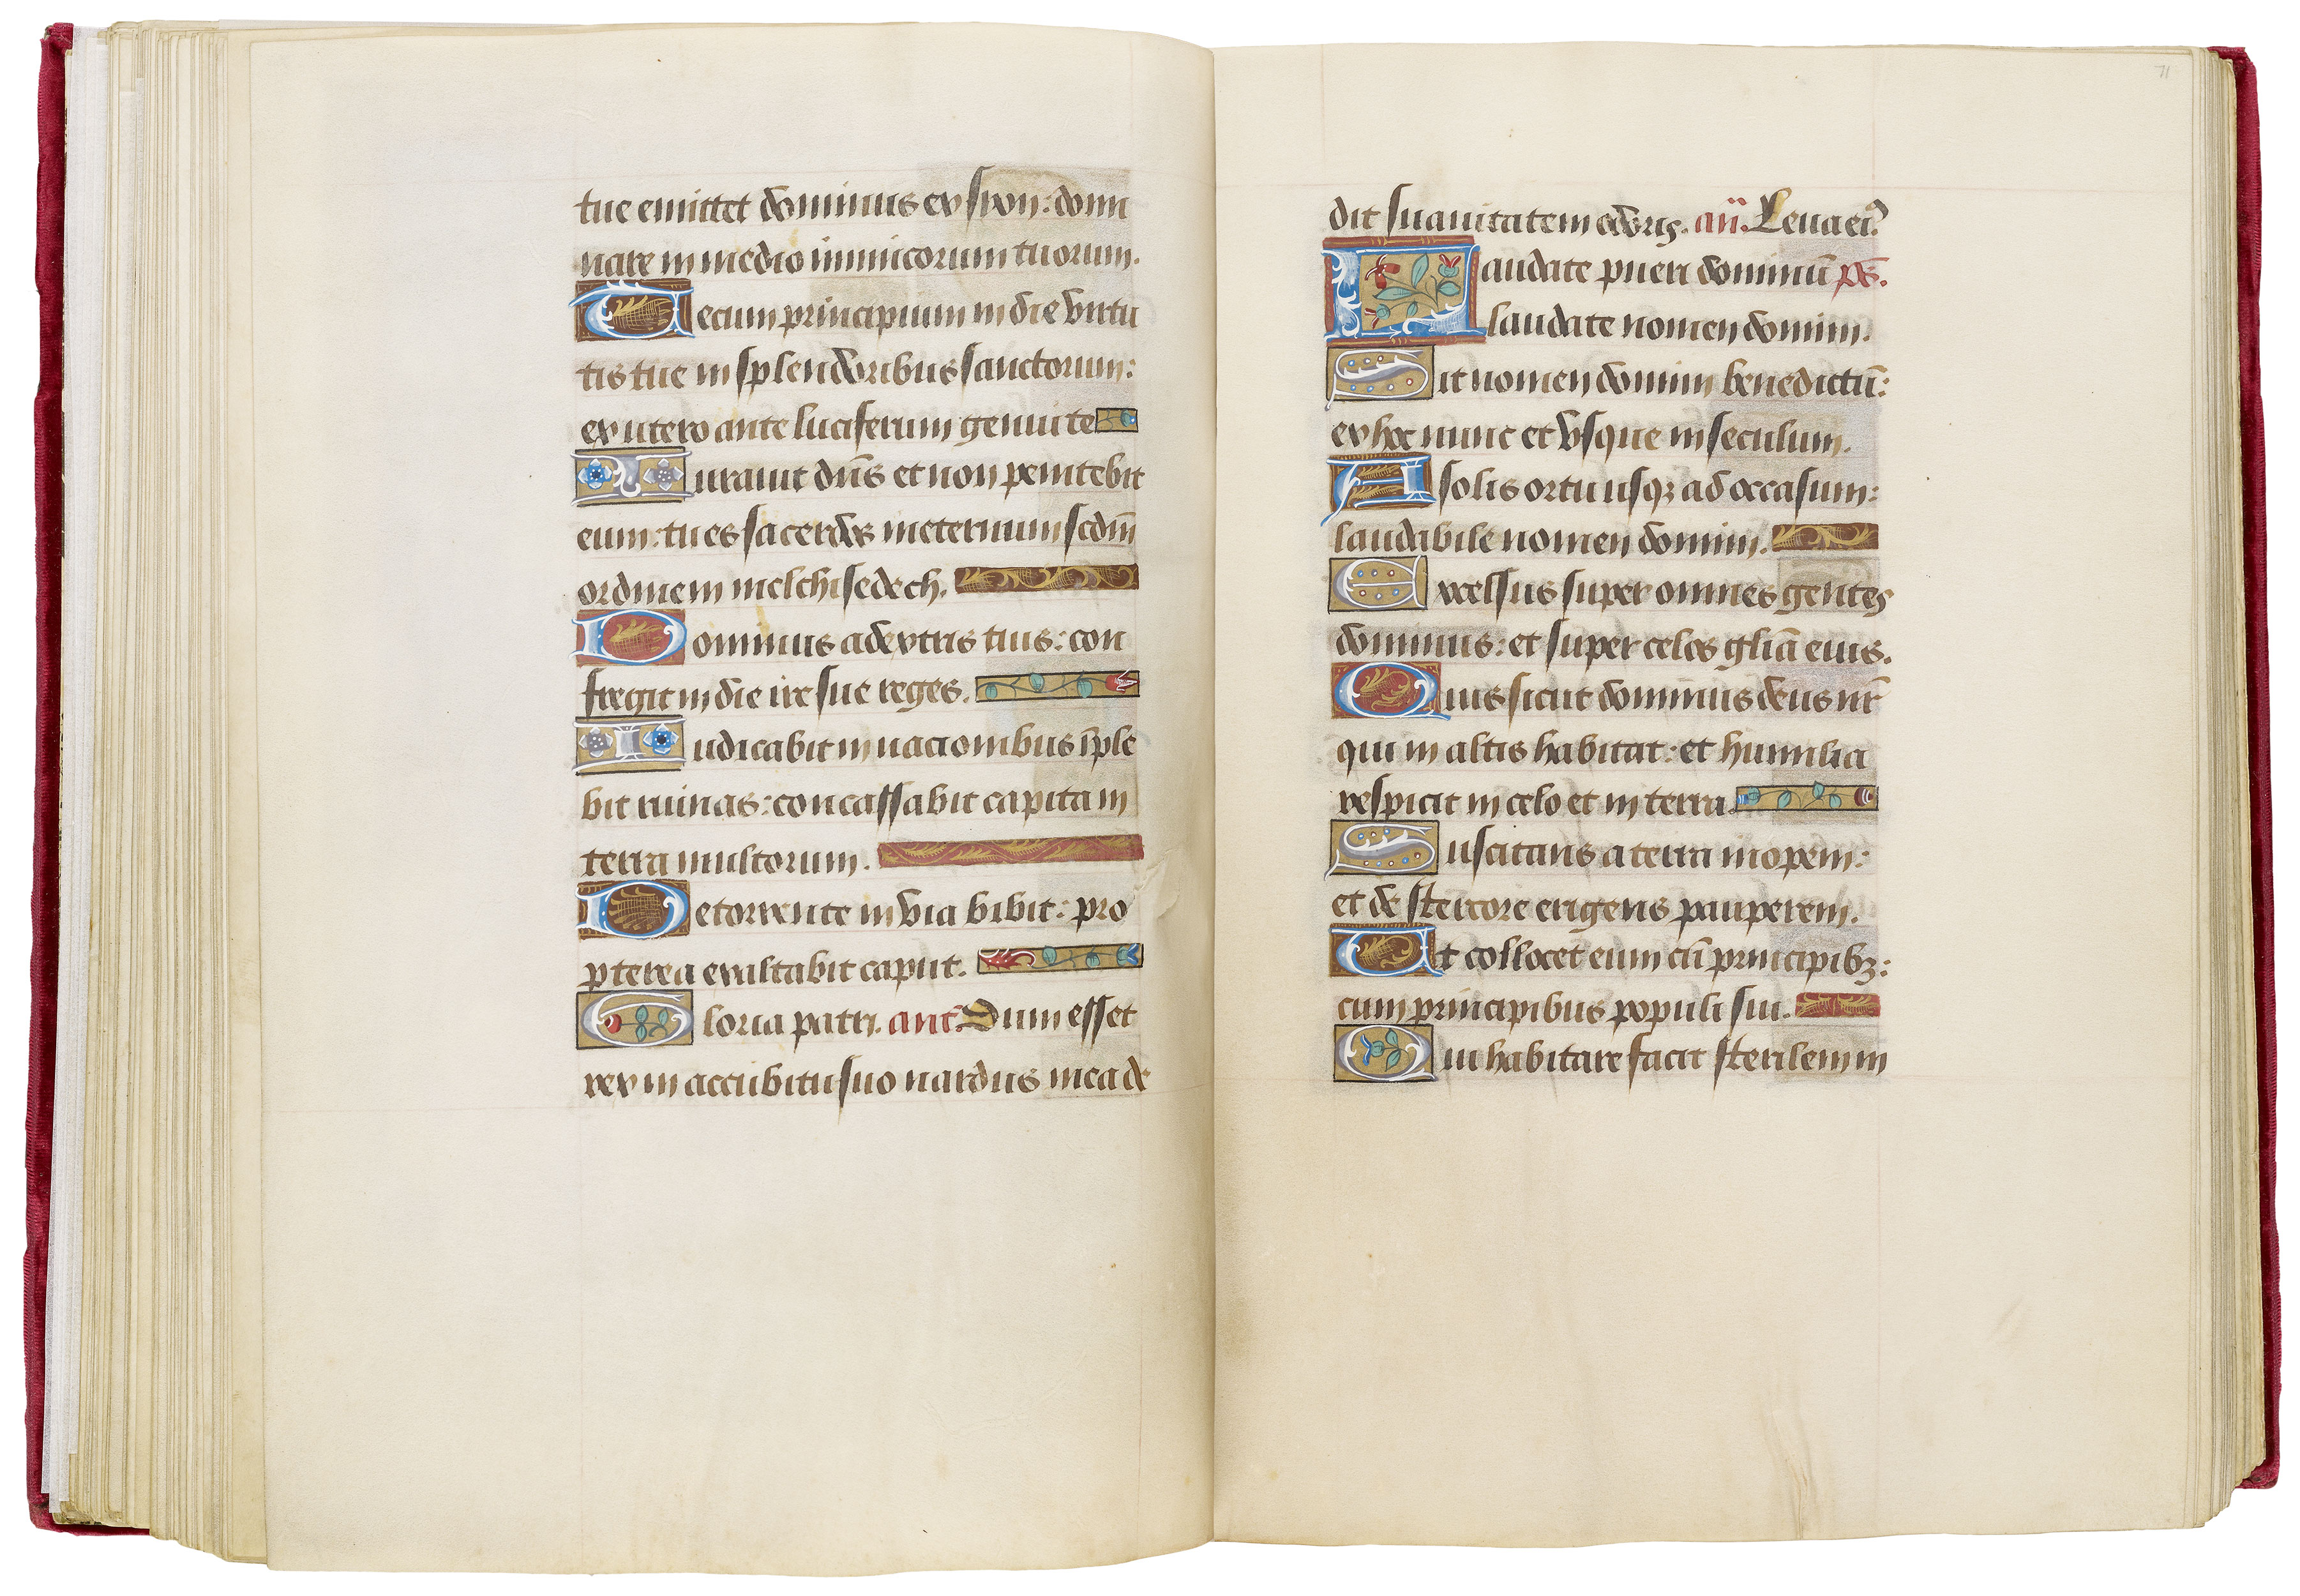 tue emittet dominus ex syon: domi
nare in medio inimicorum tuorum.
Tecum principium in die virtu
tis tue in splendoribus sanctorum:
ex utero ante luciferum genui te
Iurauit dn̄s et non penitebit
eum: tu es sacerdos in eternum scdm̄
ordinem melchisedech.
Dominus a dextris tuis: con
fregit in die ire sue reges.
Iudicabit in nacionibus īple
bit ruinas: concassabit capita in
terra multorum.
De torrente in via bibit: pro
pterea exaltabit caput.
Gloria patri. ant. Dum esset
rex in accubitu suo nardus mea de
71
dit suauitatem odoris. an. Leua ei?
Laudate pueri dominū ps.
laudate nomen domini.
Sit nomen domini benedictū:
ex hoc nunc et vsque in seculum.
A solis ortu usqꝫ ad occasum:
laudabile nomen domini.
Excelsus super omnes gentes
dominus: et super celos gliā eius.
Quis sicut dominus deus nr̄
qui in altis habitat: et humilia
respicit in celo et in terra.
Suscitans a terra inopem:
et de stercore erigens pauperem.
Ut collocet eum cū principibꝫ:
cum principibus populi sui.
Qui habitare facit sterilem in